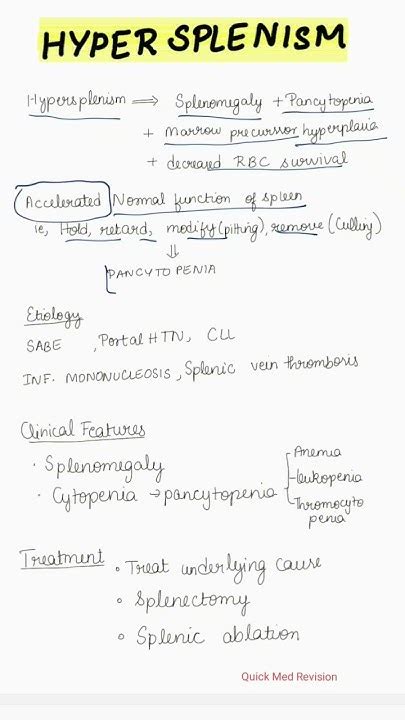 HYPER SPLENISM
Hypersplenism ⟹ Splenomegaly + Pancytopenia
+ Marrow precursor hyperplasia
+ decreased RBC survival
Accelerated Normal function of spleen
ie, Hold, retard, modify (pitting), remove (Culling)
⇓
PANCYTOPENIA
Etiology
SABE , Portal HTN, CLL
INF. MONONUCLEOSIS, Splenic vein thrombosis
Clinical Features
· Splenomegaly
· Cytopenia → pancytopenia
Anemia
leukopenia
Thrombocyto
penia
Treatment
• Treat underlying cause
• Splenectomy
• Splenic ablation
Quick Med Revision